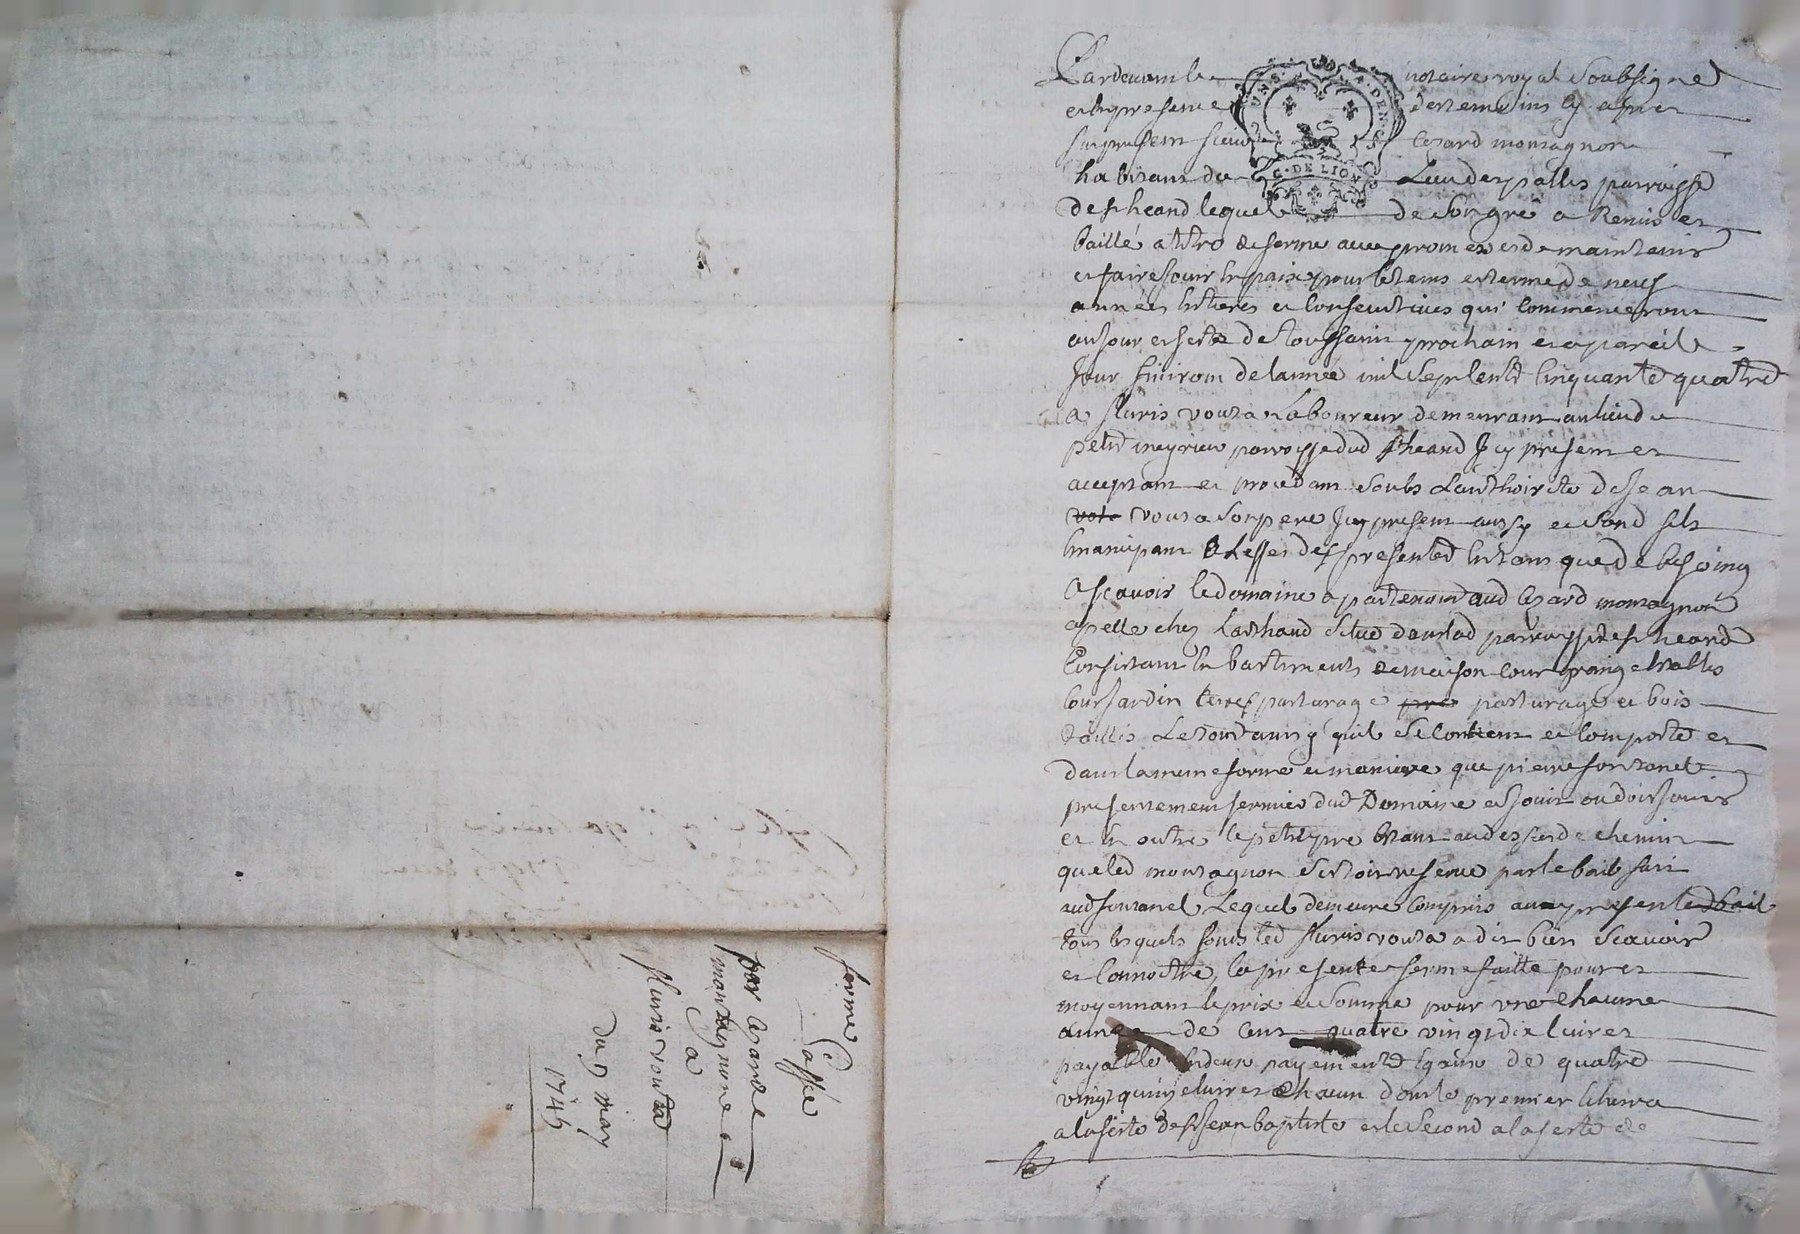 Pardevant le notaire royal soubsigné
et en presence des temoins cy apres
fut present sieur Cezard montagnon
habitant du Lieu des palles parroisse
de st heand lequel de son gré a Remis et
baillé a titre de ferme avec promesse de maintenir
et faire jouir en paix pour le tems et terme de neuf
années entieres et consecutives qui commenceront
au jour et feste de toussaint prochain et a pareil
Jour finiront de lannée mil sept cent cinquante quatre
a fluris vouta Laboureur demeurant au lieu de
petit meyrieu parroisse dud st heand Icy present et
acceptant et procedant soubs Lauthorité de Jean
vouta son pere Icy present aussy et sond fils
emancipant a Leffet des presentes entant que de besoing
a scavoir le domaine apartenant aud Cezard montagnon
apellé chez Lathaud situé dans lad parroisse de st heand
Consistant en batiments de maison cour grange estables
cour jardin terres pasturage pré pasturage et bois
taillis Le tout ainsy quil se contient et comporte et
dans la meme forme et maniere que pierre fontanel
presentement fermier dud Domaine en jouit ou doit jouir
et en outre le petit pré etant au dessus de chemin
que led montagnon sestoit reservé par le bail fait
aud fontanel Lequel demeure compris au present bail
tous lesquels fonds led fluris vouta a dit bien scavoir
et connoitre, la presente ferme faitte pour et
moyennant le prix et somme pour une chacune
année de cent quatre vingt dix livres
payable en deux payements egaux de quatre
vingt quinze livres chacun dont le premier echerra
a la feste de st Jean baptiste et le second a la feste de
ferme
par
montagnone
a
fluris vouta
du 9 may
1746
G. DE LION